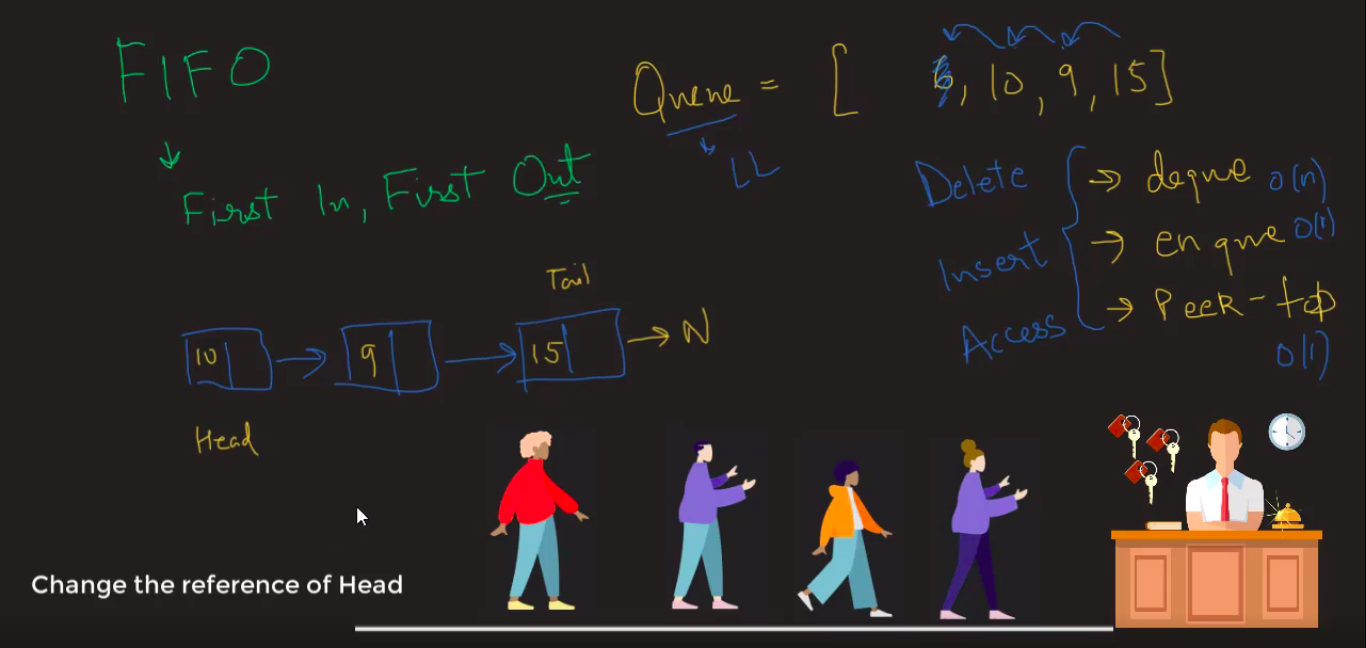 FIFO
↓
First In, First Out
Queue = [ 6, 10, 9, 15]
↓
LL
Delete → deque O(n)
Insert → enque O(1)
Access → Peek - top
O(1)
Tail
10 → 9 → 15 → N
Head
Change the reference of Head